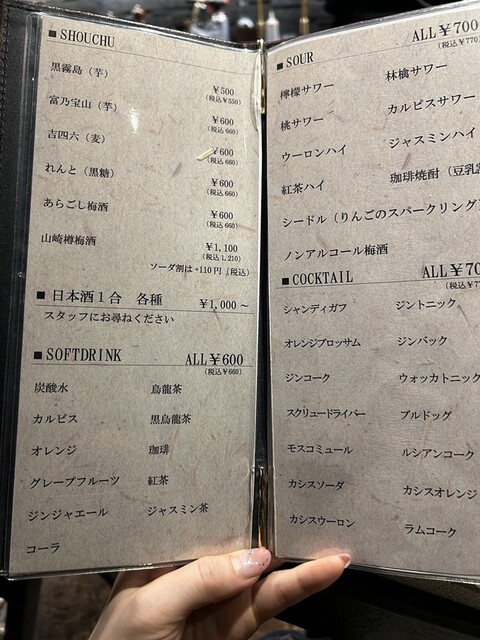 ■ SHOUCHU
黒霧島（芋） ￥500
（税込￥550）
富乃宝山（芋） ￥600
（税込 660）
吉四六（麦） ￥600
（税込 660）
れんと（黒糖） ￥600
（税込 660）
あらごし梅酒 ￥600
（税込 660）
山崎樽梅酒 ￥1,100
（税込 1,210）
ソーダ割は +110 円（税込）
■ 日本酒１合　各種 ￥1,000 ～
スタッフにお尋ねください
■ SOFTDRINK ALL￥600
（税込￥660）
炭酸水 烏龍茶
カルピス 黒烏龍茶
オレンジ 珈琲
グレープフルーツ 紅茶
ジンジャエール ジャスミン茶
コーラ
■ SOUR ALL￥700
（税込￥770）
檸檬サワー 林檎サワー
桃サワー カルピスサワー
ウーロンハイ ジャスミンハイ
紅茶ハイ 珈琲焼酎（豆乳
シードル（りんごのスパークリング）
ノンアルコール梅酒
■ COCKTAIL ALL￥70
（税込￥77
シャンディガフ ジントニック
オレンジブロッサム ジンバック
ジンコーク ウォッカトニック
スクリュードライバー ブルドッグ
モスコミュール ルシアンコーク
カシスソーダ カシスオレンジ
カシスウーロン ラムコーク